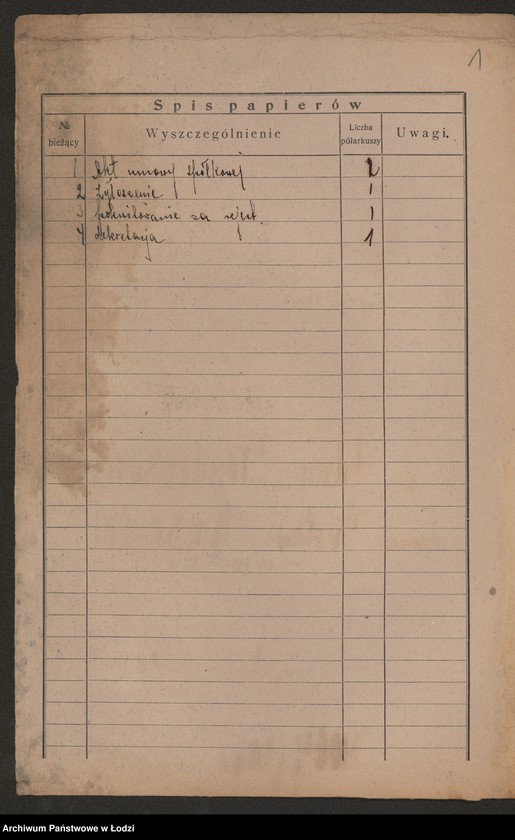 1
Spis papierów
№ bieżący
Wyszczególnienie
Liczba półarkuszy
Uwagi.
1 Akt umowy spółkowej 2
2 Zgłoszenie 1
3 pokwitowanie za rejest. 1
4 dekretacja 1
Archiwum Państwowe w Łodzi